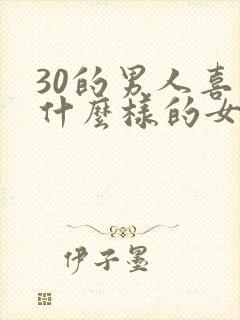 30的男人喜
什麼樣的女
伊子墨